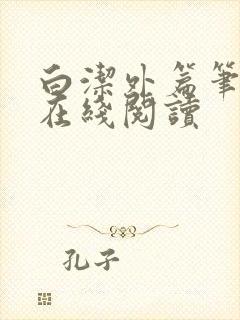 白潔外篇筆
在綫閱讀
孔子